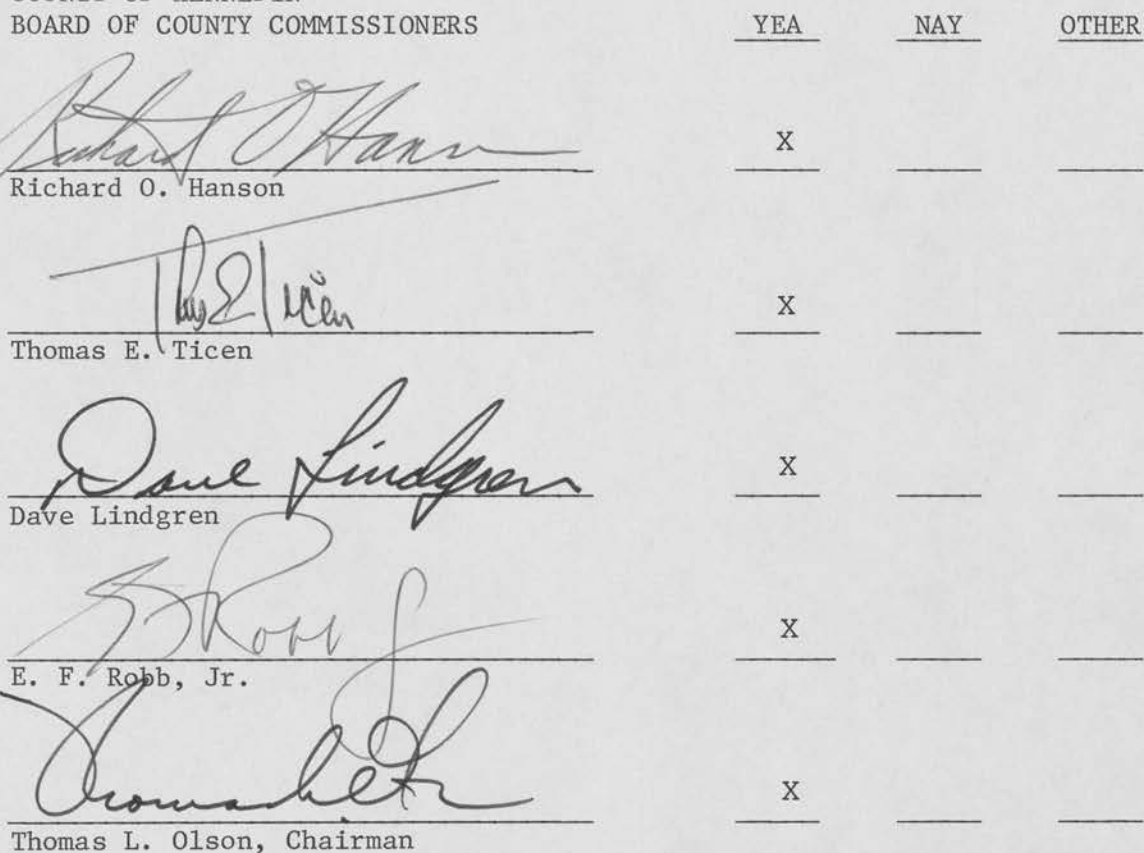 BOARD OF COUNTY COMMISSIONERS YEA NAY OTHER
Richard O Hanson
X
Richard O. Hanson
Thos E Ticen
X
Thomas E. Ticen
Dave Lindgren
X
Dave Lindgren
E F Robb Jr
X
E. F. Robb, Jr.
X
Thomas L. Olson, Chairman